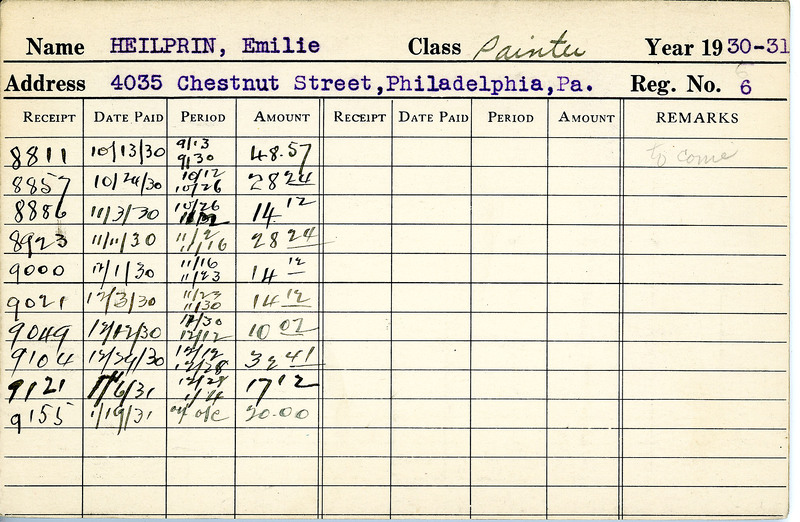 Name HEILPRIN, Emilie Class Painter Year 1930-31
Address 4035 Chestnut Street, Philadelphia, Pa. Reg. No. 6
RECEIPT DATE PAID PERIOD AMOUNT RECEIPT DATE PAID PERIOD AMOUNT REMARKS
8811 10/13/30 9/13 9/30 48.57 to come
8857 10/24/30 10/12 10/26 28 24
8886 11/3/30 10/26 14 12
8923 11/11/30 11/2 11/16 28 24
9000 12/1/30 11/16 11/23 14 12
9021 12/3/30 11/23 11/30 14 12
9049 12/12/30 12/12 10 02
9104 12/24/30 12/12 12/28 41
9121 1/6/31 12/28 17 12
9155 1/19/31 20.00